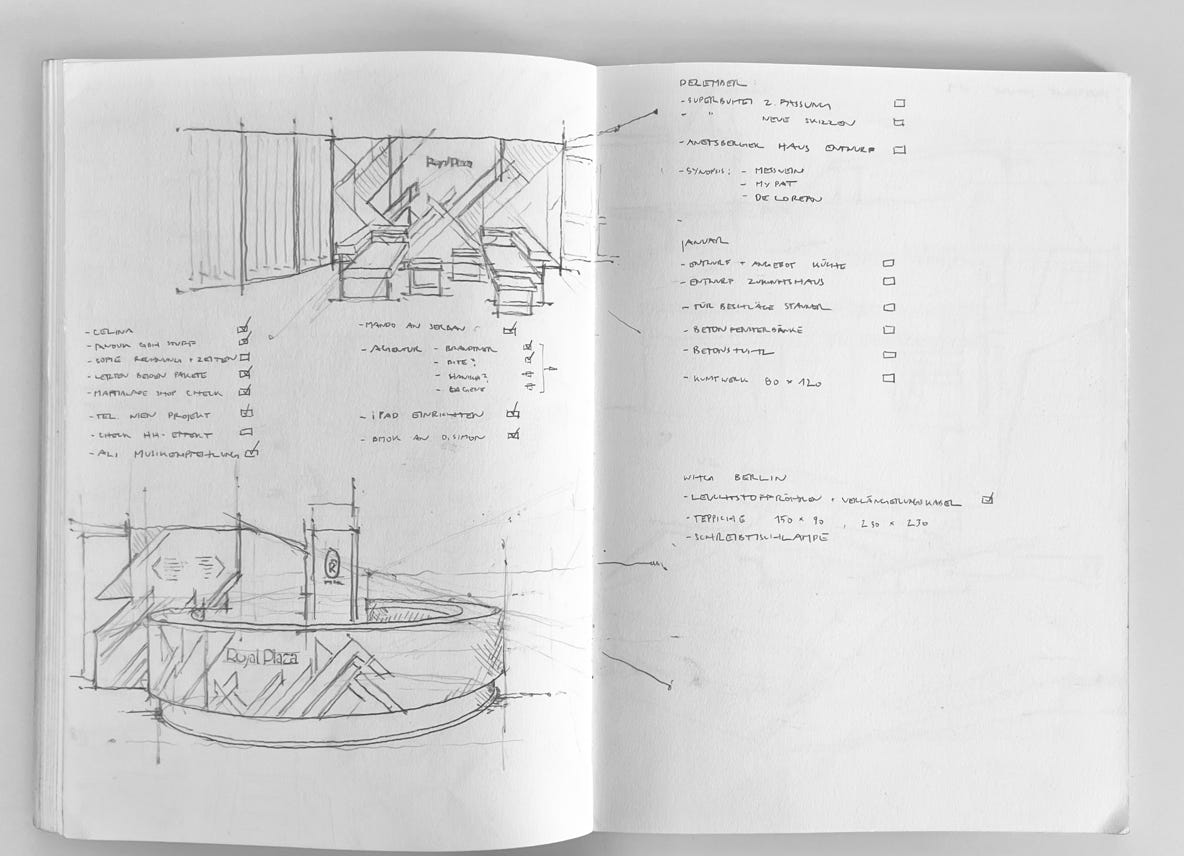 Royal Plaza
- CELINA
- SOFIE RECHNUNG + ZEITEN
- LETZTEN BEIDEN PAKETE
- SHOP CHECK
- TEL. WIEN PROJEKT
- CHECK HH-EFFEKT
- ALI MUSIKEMPFEHLUNG
- MANDO AN SERBAN
- AGENTUR - BRANDTNER
- HANIKA?
- IPAD EINRICHTEN
- AMOK AN D. SIMON
R
Royal Plaza
DEZEMBER:
- SUPERBUDE 2. FASSUNG
- " NEUE SKIZZEN
- HAUS ENTWURF
- SYNOPSIS: - MESSWEIN
- MY PAT
- DE LOREAN
-
JANUAR
- ENTWURF + ANGEBOT KÜCHE
- ENTWURF ZUKUNFTSHAUS
- TÜR BESCHLÄGE
- BETONFENSTERBÄNKE
- BETONSTUHL
- KUNSTWERK 80 x 120
BERLIN
- LEUCHTSTOFFRÖHREN + VERLÄNGERUNGSKABEL
- TEPPICHE 150 x 90, 230 x 230
- SCHREIBTISCHLAMPE